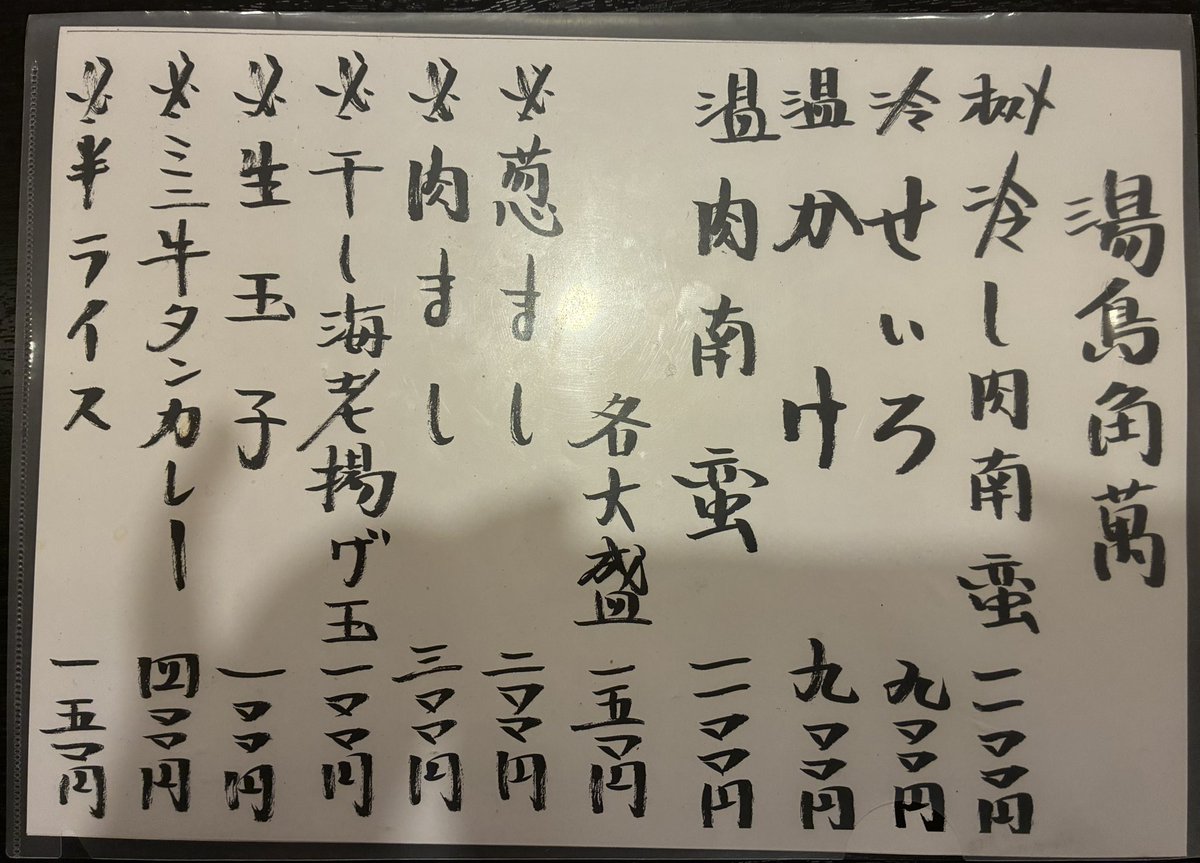 湯島角萬
冷し肉南蛮 一一〇〇円
冷 せいろ 九〇〇円
温 かけ 九〇〇円
温 肉南蛮 一一〇〇円
各大盛 一五〇円
※ 葱まし 二〇〇円
※ 肉まし 三〇〇円
※ 干し海老揚ゲ玉 一〇〇円
※ 生玉子 一〇〇円
※ ミニ牛タンカレー 四〇〇円
※ 半ライス 一五〇円